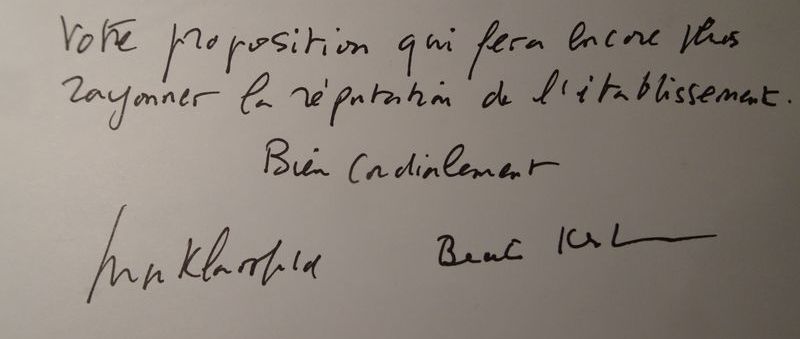 Votre proposition qui fera encore plus
rayonner la réputation de l'établissement.
Bien Cordialement
Klarsfeld Beate